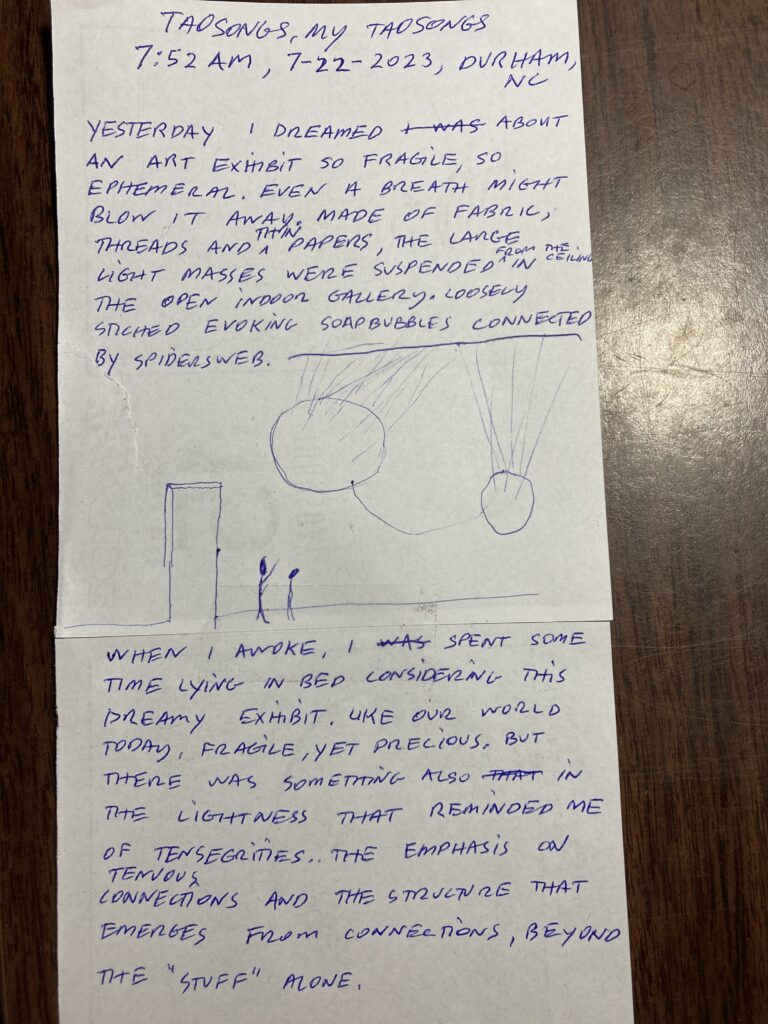 TAOSONGS, MY TAOSONGS
7:52 AM, 7-22-2023, DURHAM,
NC
YESTERDAY I DREAMED I WAS ABOUT
AN ART EXHIBIT SO FRAGILE, SO
EPHEMERAL. EVEN A BREATH MIGHT
BLOW IT AWAY. MADE OF FABRIC,
THREADS AND THIN PAPERS, THE LARGE
LIGHT MASSES WERE SUSPENDED FROM THE CEILING IN
THE OPEN INDOOR GALLERY. LOOSELY
STICHED EVOKING SOAPBUBBLES CONNECTED
BY SPIDERSWEB.
WHEN I AWOKE, I WAS SPENT SOME
TIME LYING IN BED CONSIDERING THIS
DREAMY EXHIBIT. LIKE OUR WORLD
TODAY, FRAGILE, YET PRECIOUS. BUT
THERE WAS SOMETHING ALSO THAT IN
THE LIGHTNESS THAT REMINDED ME
OF TENSEGRITIES.. THE EMPHASIS ON
TENUOUS
CONNECTIONS AND THE STRUCTURE THAT
EMERGES FROM CONNECTIONS, BEYOND
THE "STUFF" ALONE.